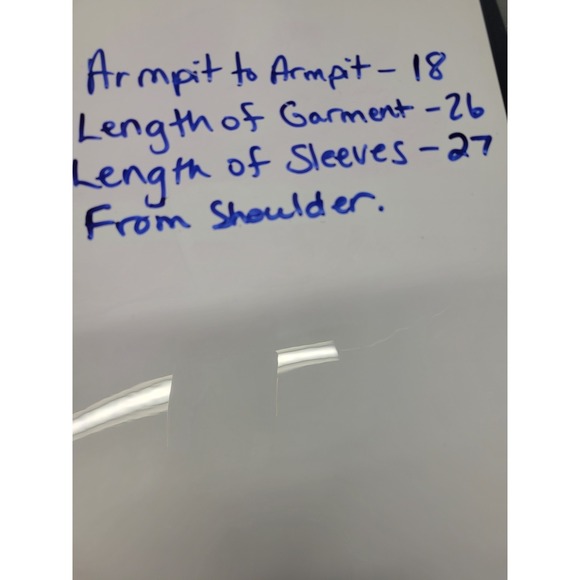 Armpit to Armpit - 18
Length of Garment - 26
Length of Sleeves - 27
From Shoulder.